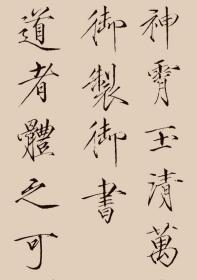 神霄玉清萬
御製御書
道者體之可